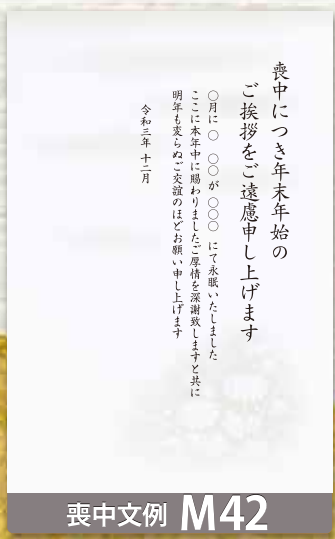 喪中につき年末年始の
ご挨拶をご遠慮申し上げます
〇月に〇　〇〇が　〇〇〇　にて永眠いたしました
ここに本年中に賜わりましたご厚情を深謝致しますと共に
明年も変らぬご交誼のほどお願い申し上げます
令和三年 十二月
喪中文例 M42